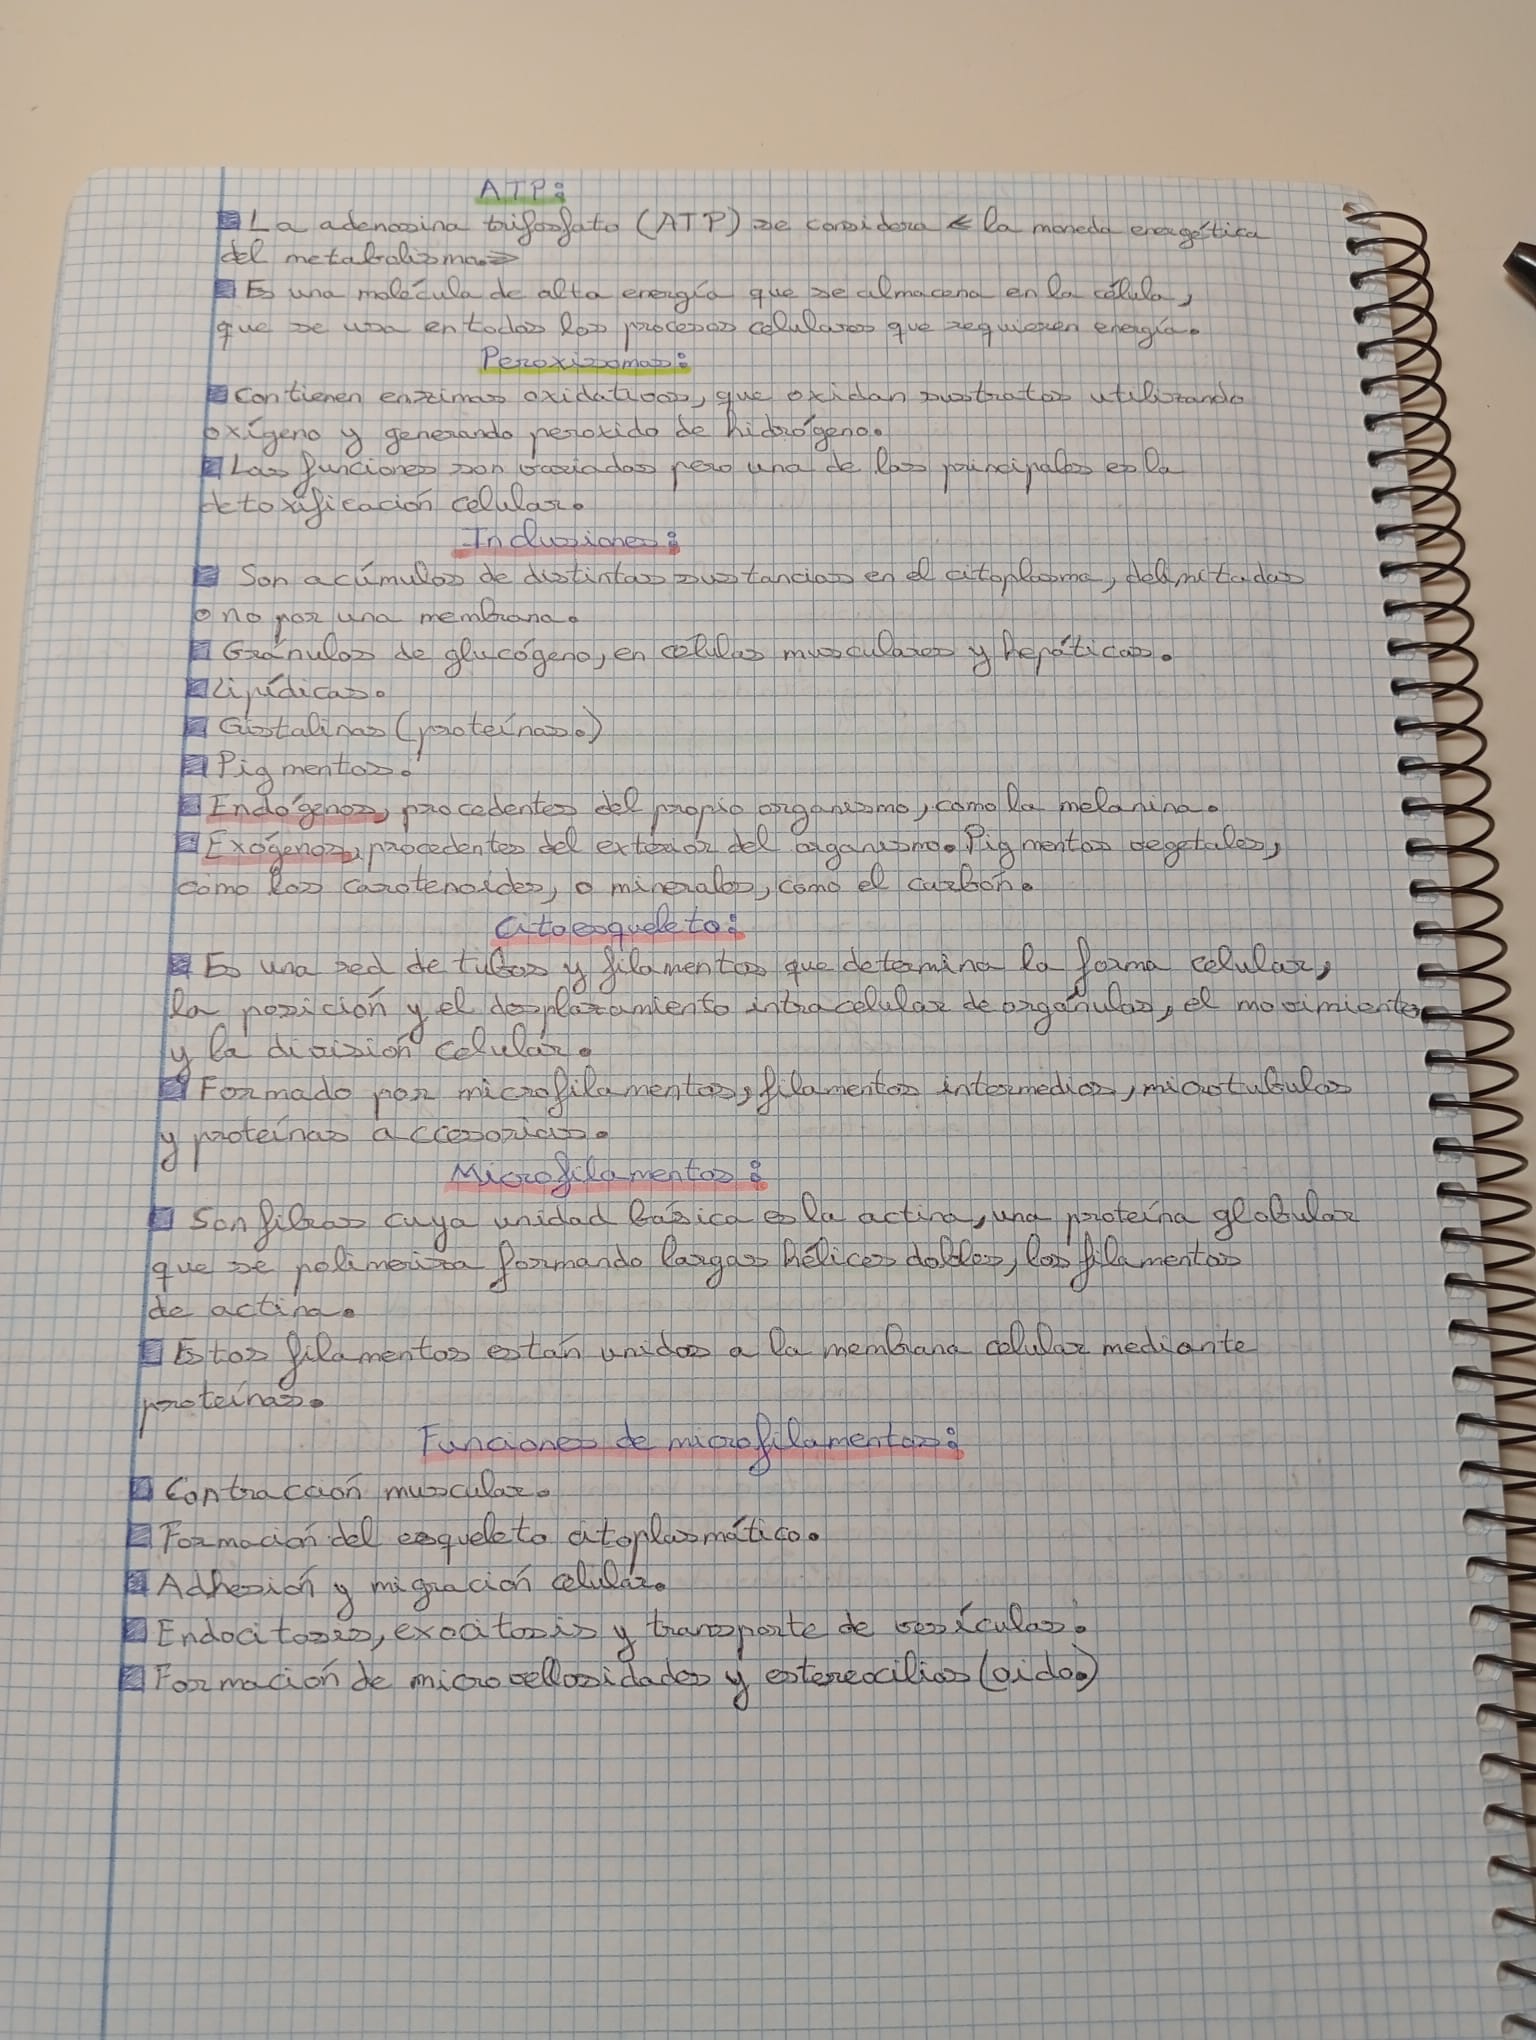 ATP:
La adenosina trifosfato (ATP) se considera < la moneda energética
del metabolismo.>
Es una molécula de alta energía que se almacena en la célula,
que se usa en todos los procesos celulares que requieren energía.
Peroxisomas:
Contienen enzimas oxidativas, que oxidan sustratos utilizando
oxígeno y generando peroxido de hidrógeno.
Las funciones son variadas pero una de las principales es la
detoxificación celular.
Inclusiones:
Son acúmulos de distintas sustancias en el citoplasma, delimitadas
o no por una membrana.
Gránulos de glucógeno, en células musculares y hepáticas.
Lipídicas.
Cristalinas (proteínas.)
Pigmentos.
Endógenos, procedentes del propio organismo, como la melanina.
Exógenos, procedentes del exterior del organismo. Pigmentos vegetales,
como los carotenoides, o minerales, como el carbón.
Citoesqueleto:
Es una red de tubos y filamentos que determina la forma celular,
la posición y el desplazamiento intracelular de orgánulos, el movimiento
y la división celular.
Formado por microfilamentos, filamentos intermedios, microtubulos
y proteínas accesorias.
Microfilamentos:
Son fibras cuya unidad básica es la actina, una proteína globular
que se polimeriza formando largas hélices dobles, los filamentos
de actina.
Estos filamentos están unidos a la membrana celular mediante
proteínas.
Funciones de microfilamentos:
Contracción muscular.
Formación del esqueleto citoplasmático.
Adhesión y migración celular.
Endocitosis, exocitosis y transporte de vesículas.
Formación de microvellosidades y estereocilios (oido.)